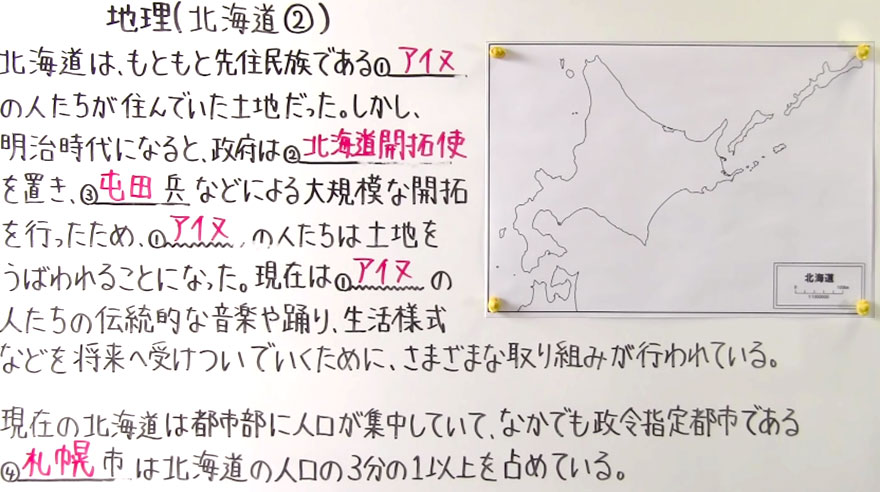 地理(北海道②)
北海道は、もともと先住民族である①アイヌ
の人たちが住んでいた土地だった。しかし、
明治時代になると、政府は②北海道開拓使
を置き、③屯田兵などによる大規模な開拓
を行ったため、①アイヌの人たちは土地を
うばわれることになった。現在は①アイヌの
人たちの伝統的な音楽や踊り、生活様式
などを将来へ受けついでいくために、さまざまな取り組みが行われている。
現在の北海道は都市部に人口が集中していて、なかでも政令指定都市である
④札幌市は北海道の人口の3分の1以上を占めている。
北海道